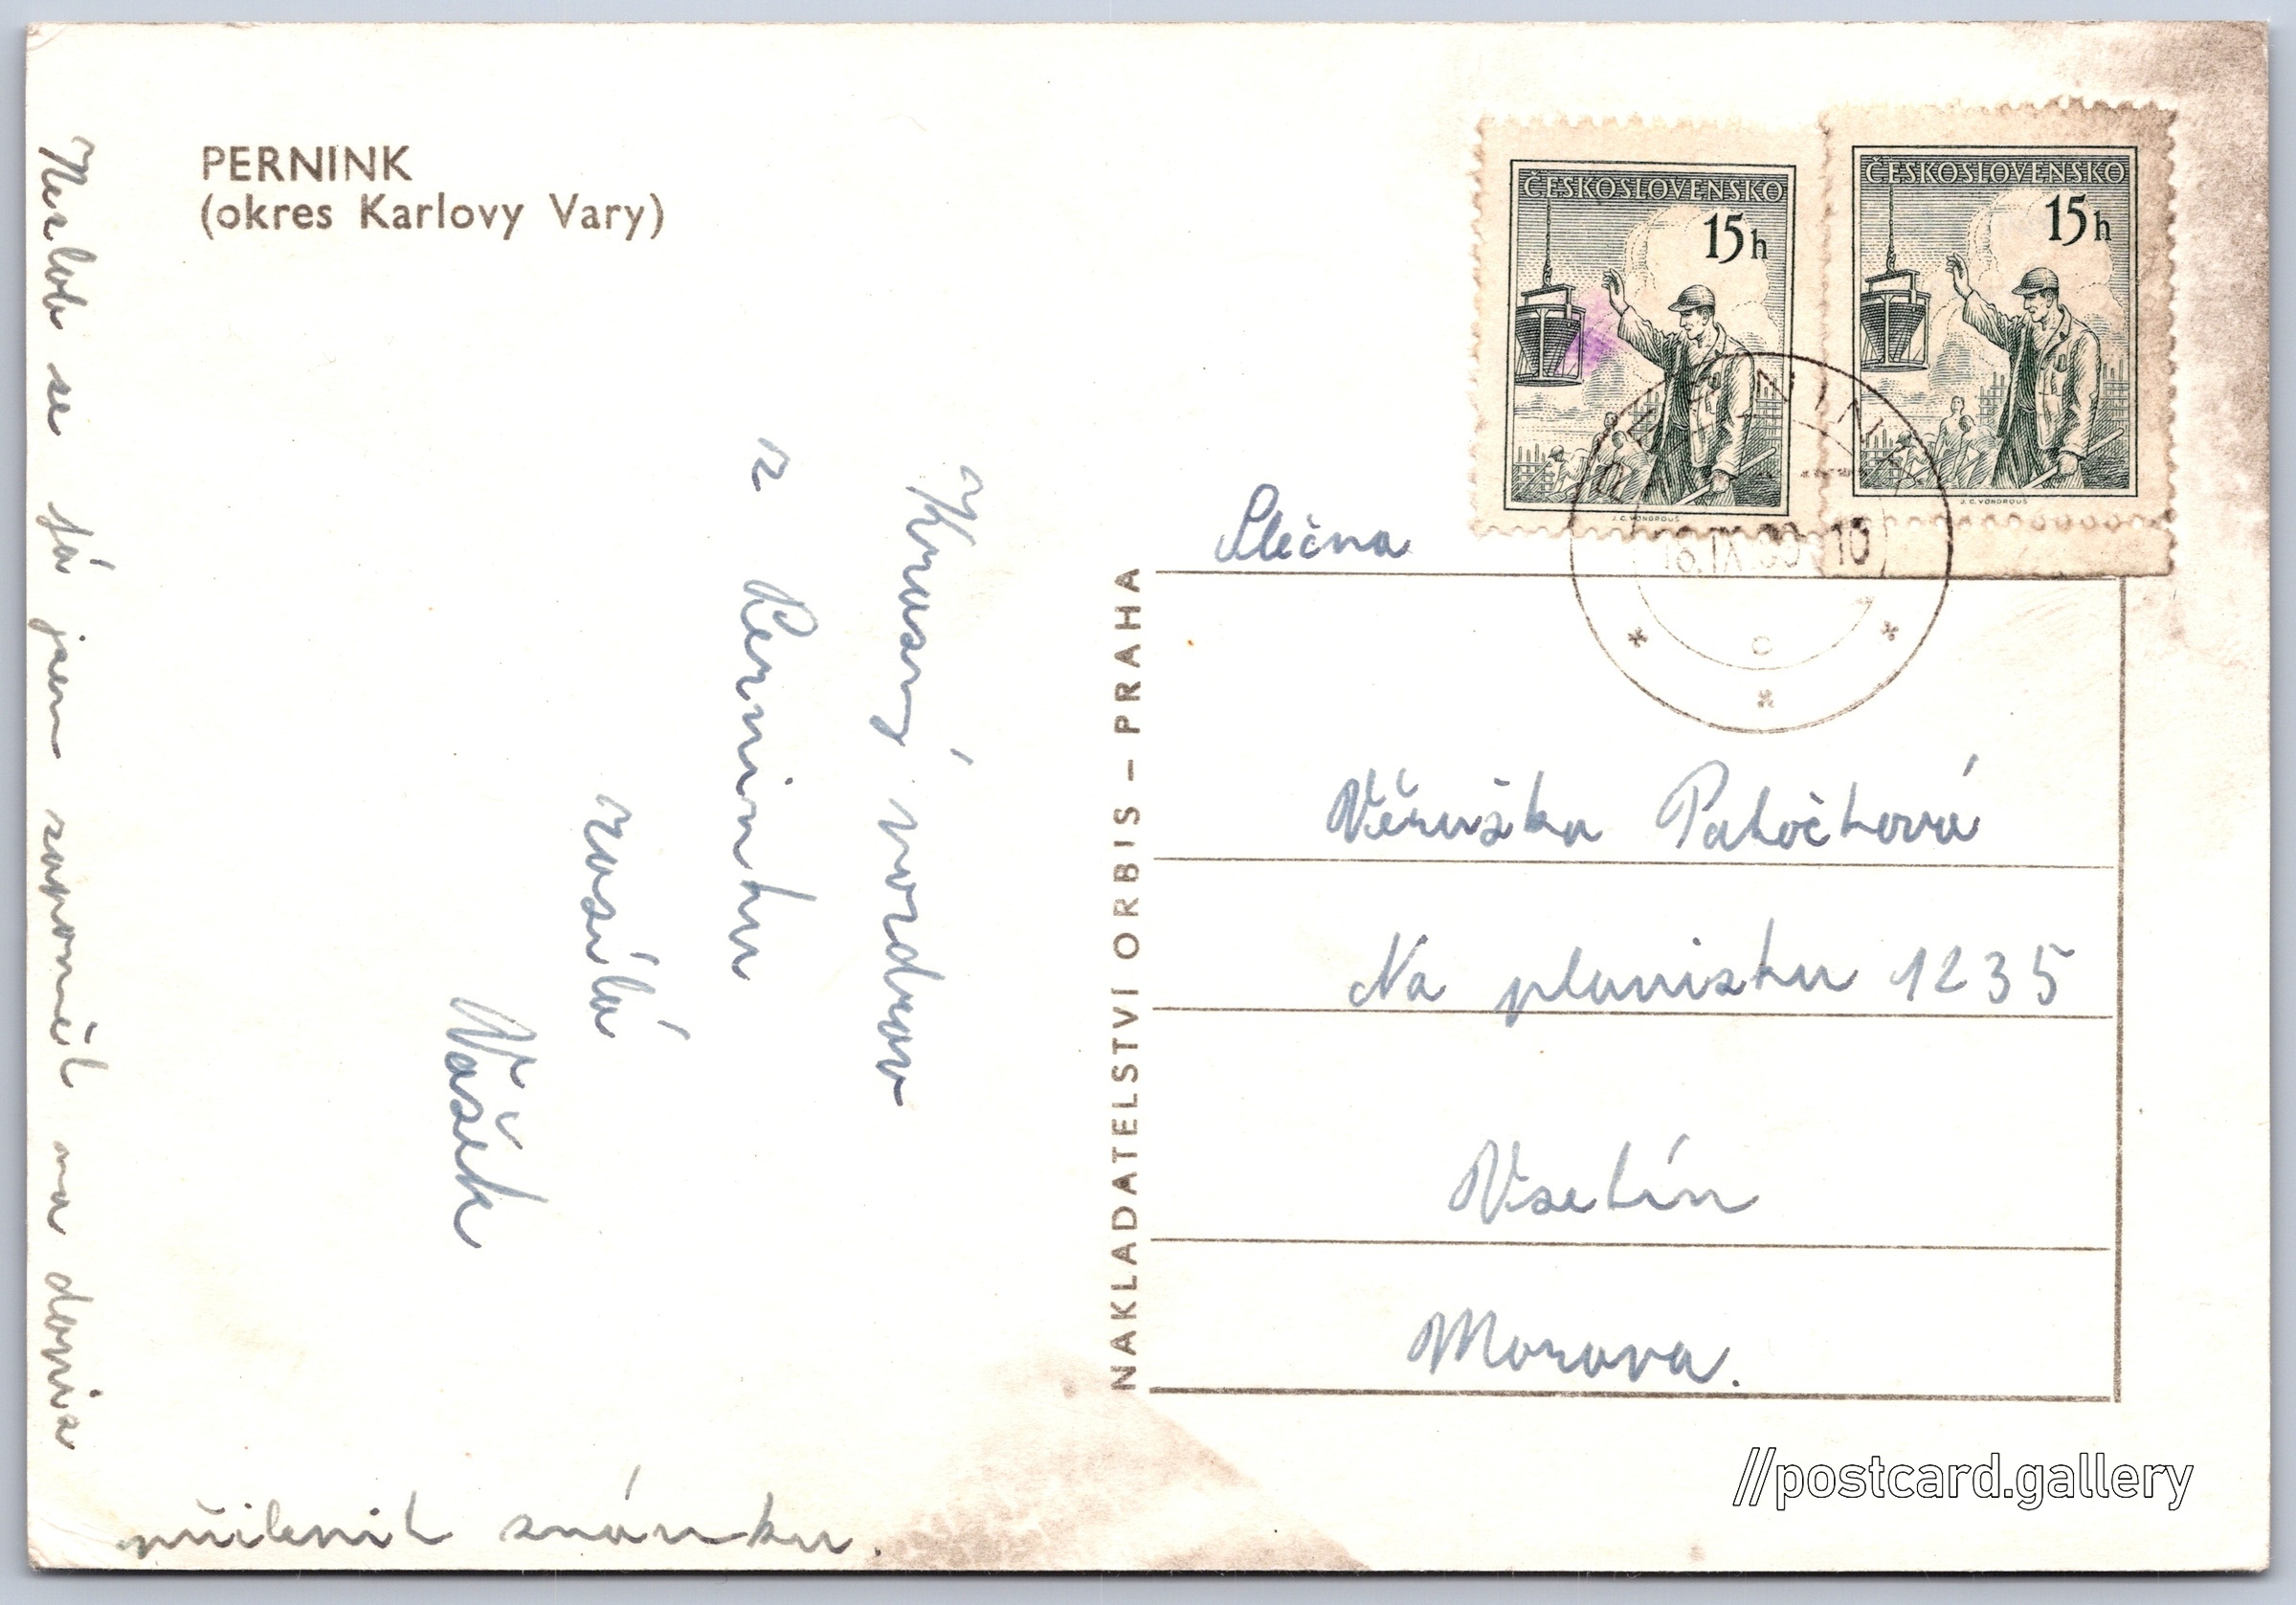 PERNINK
(okres Karlovy Vary)
Krásný pozdrav
z Perninku
zasílá
Vašek
Nezlob se já jsem zapomněl na dopis
přilepit známku.
NAKLADATELSTVÍ ORBIS – PRAHA
ČESKOSLOVENSKO
15h
J.C.VONDROUŠ
ČESKOSLOVENSKO
15h
J.C.VONDROUŠ
Slečna
Věruška Patočková
Na planisku 1235
Vsetín
Morava.
//postcard.gallery